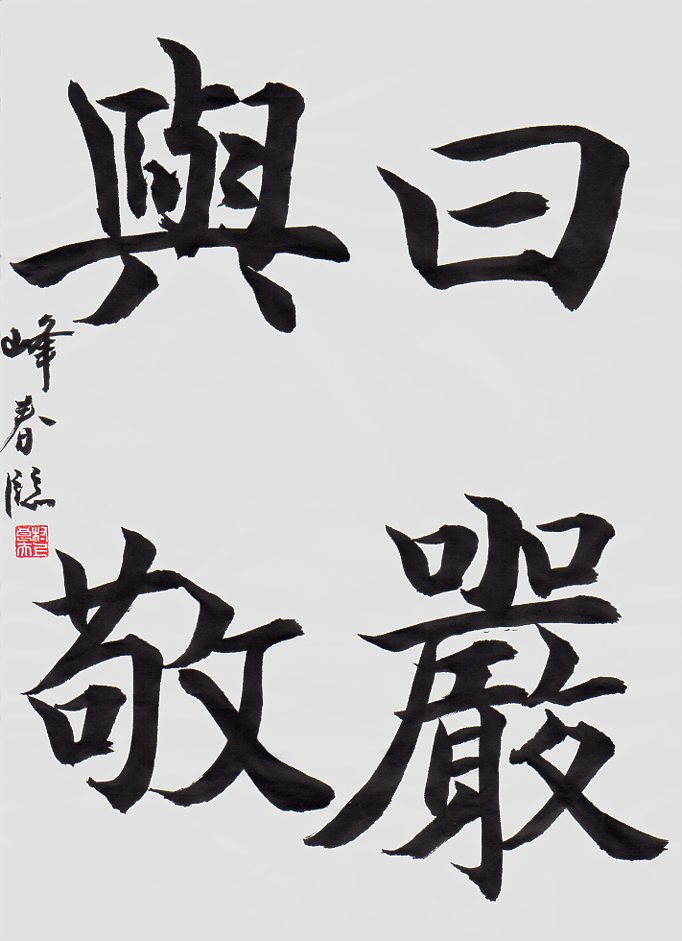 曰嚴
與敬
峰春臨